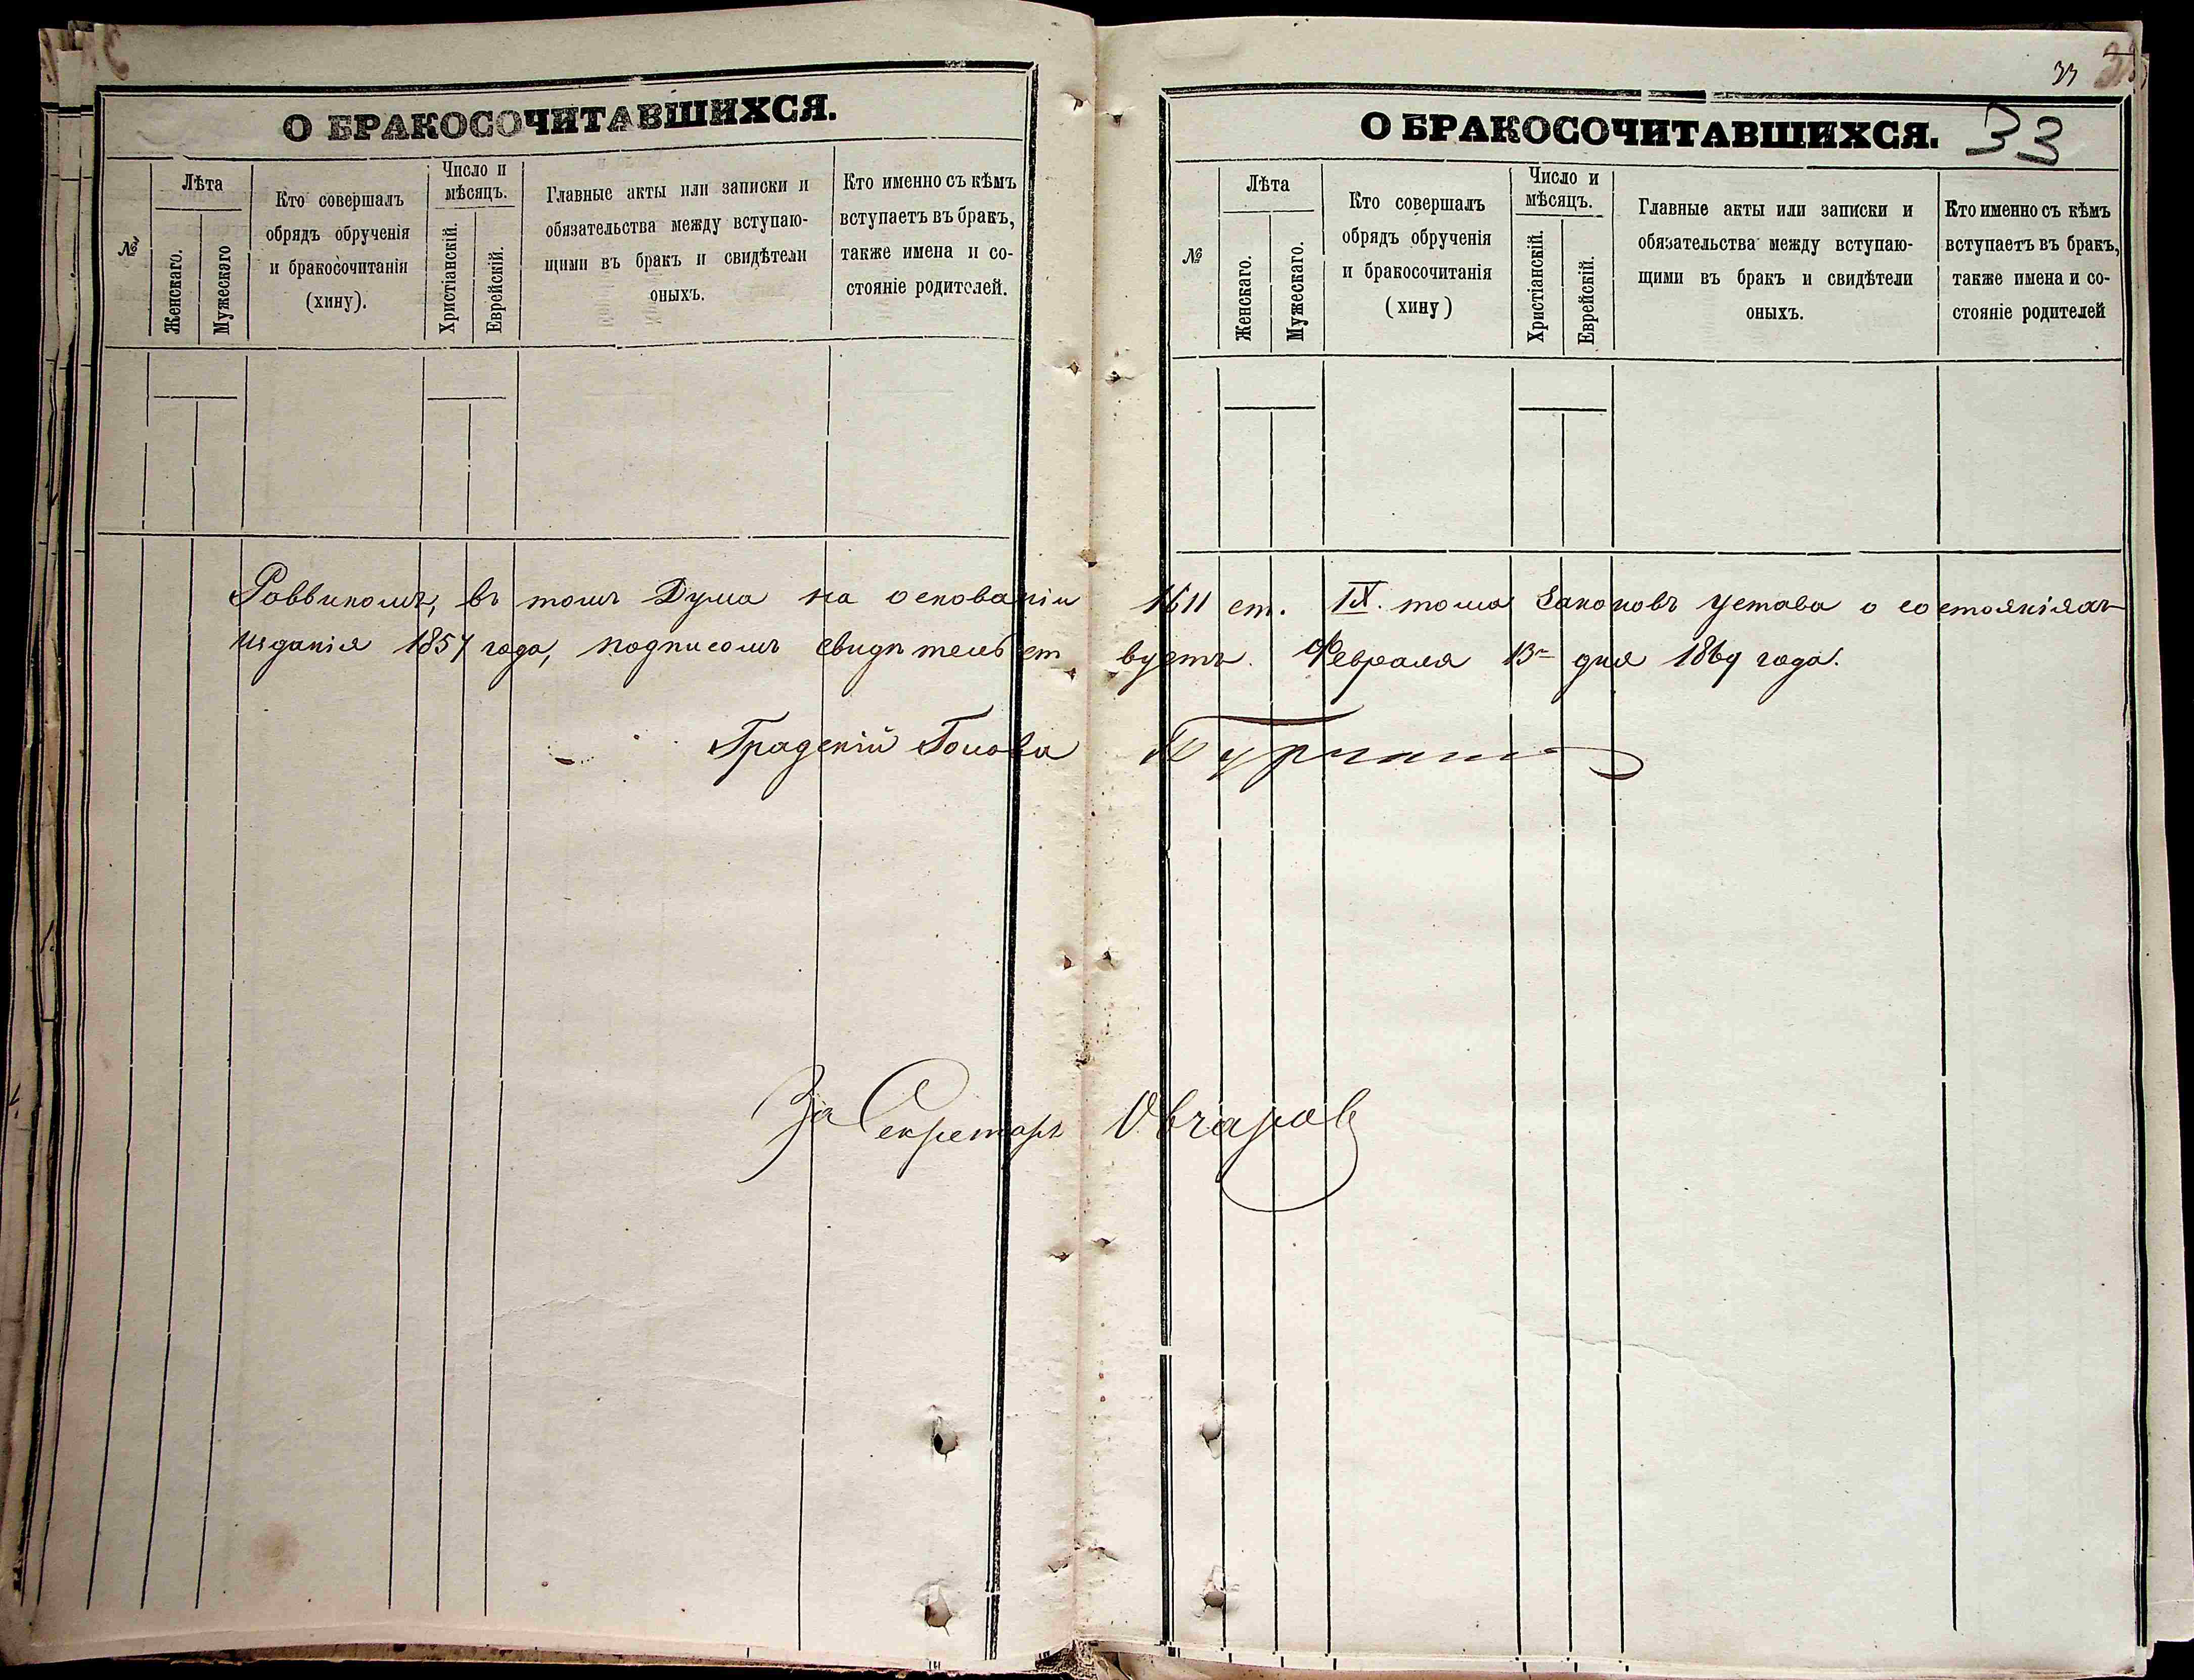 О БРАКОСОЧИТАВШИХСЯ.
№
Лѣта
Женскаго.
Мужескаго
Кто совершалъ
обрядъ обрученія
и бракосочитанія
(хину).
Число и
мѣсяцъ.
Христіанскій.
Еврейскій.
Главные акты или записки и
обязательства между вступаю-
щими въ бракъ и свидѣтели
оныхъ.
Кто именно съ кѣмъ
вступаетъ въ бракъ,
также имена и со-
стояніе родителей.
33
О БРАКОСОЧИТАВШИХСЯ.
33
№
Лѣта
Женскаго.
Мужескаго.
Кто совершалъ
обрядъ обрученія
и бракосочитанія
(хину)
Число и
мѣсяцъ.
Христіанскій.
Еврейскій.
Главные акты или записки и
обязательства между вступаю-
щими въ бракъ и свидѣтели
оныхъ.
Кто именно съ кѣмъ
вступаетъ въ бракъ,
также имена и со-
стояніе родителей
Раввиномъ, въ томъ Дума на основаніи 1611 ст. IX. тома Законовъ устава о состояніяхъ
изданія 1857 года, подписомъ свидѣтельствуетъ. Февраля 13 дня 1869 года.
Градскій Голова
За Секретарь Овчаров